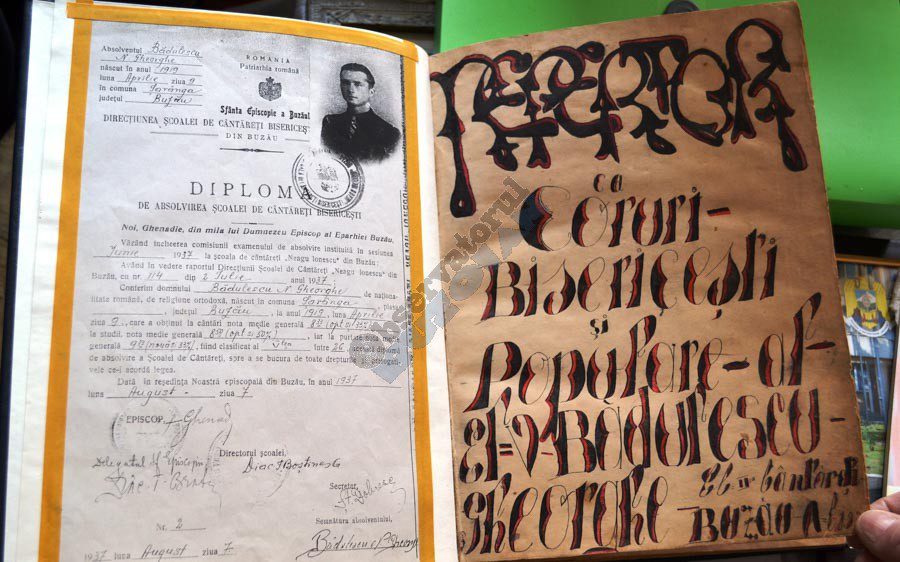 Absolventul Bădulescu
N. Gheorghe
născut în anul 1919
luna Aprilie ziua 9
în comuna Țarânga
județul Buzău
ROMANIA
Patriarhia română
Sfânta Episcopie a Buzăului
DIRECȚIUNEA ȘCOALEI DE CÂNTĂREȚI BISERICEȘTI
DIN BUZĂU
DIPLOMA
DE ABSOLVIREA ȘCOALEI DE CÂNTĂREȚI BISERICEȘTI
Noi, Ghenadie, din mila lui Dumnezeu Episcop al Eparhiei Buzău,
Văzând încheerea comisiunii examenului de absolvire instituită în sesiunea
Iunie 1937 la școala "Neagu Ionescu" din Buzău:
Având în vedere raportul Direcțiunii Școalei de Cântăreți "Neagu Ionescu" din
Buzău, cu nr. 114 din 2 Iulie anul 1937
Conferim domnului Bădulescu N. Gheorghe de naționa-
litate română, de religiune ortodoxă, născut în comuna Țarânga, plasa
județul Buzău, la anul 1919 luna Aprilie
ziua 9, care a obținut la cântări nota medie generală 8
la studii, nota medie generală 8 iar la purtare nota medie
generală 9 fiind clasificat al între 26, această diplomă
de absolvire a Școalei de Cântăreți, spre a se bucura de toate drepturile și privilegi-
vele ce-i acordă legea.
Dată în reședința Noastră episcopală din Buzău, în anul 1937
luna August ziua 7
EPISCOP, Ghenadie
Delegatul Sf. Episcopii
Diac.
Directorul școalei,
Diac
Secretar,
Semnătura absolventului,
Bădulescu N. Gheorghe
Nr. 2
1937 luna August ziua 7
REPERTOR
cu
Coruri-
Bisericești
și
Populare-al-
El-V-Badurescu-
Gheorghe
Buzăo
Observatorul
BUZOIAN